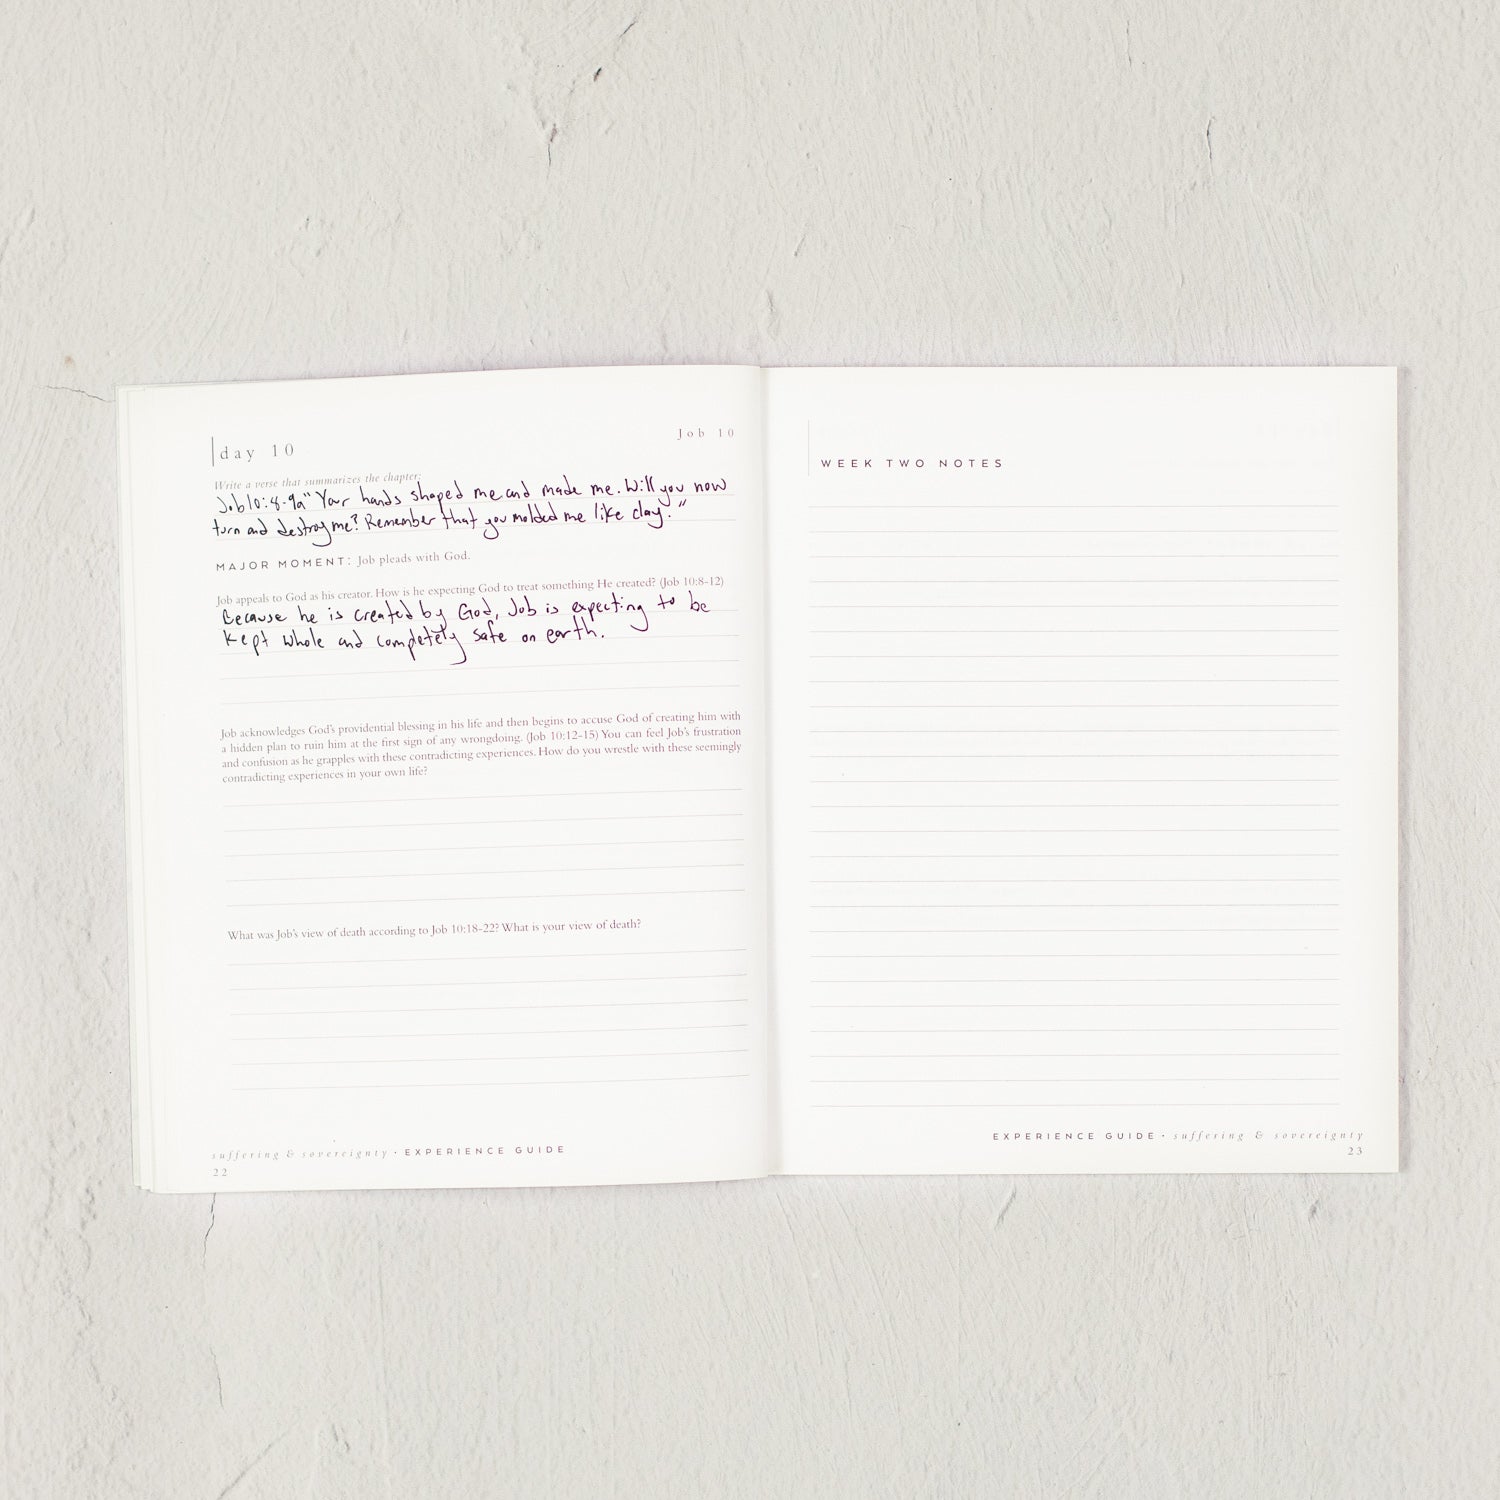 day 10
Job 10
Write a verse that summarizes the chapter:
Job 10:8-9a "Your hands shaped me and made me. Will you now
turn and destroy me? Remember that you molded me like clay."
MAJOR MOMENT: Job pleads with God.
Job appeals to God as his creator. How is he expecting God to treat something He created? (Job 10:8-12)
Because he is created by God, Job is expecting to be
kept whole and completely safe on earth.
Job acknowledges God's providential blessing in his life and then begins to accuse God of creating him with
a hidden plan to ruin him at the first sign of any wrongdoing. (Job 10:12-15) You can feel Job's frustration
and confusion as he grapples with these contradicting experiences. How do you wrestle with these seemingly
contradicting experiences in your own life?
What was Job's view of death according to Job 10:18-22? What is your view of death?
suffering & sovereignty · EXPERIENCE GUIDE
22
WEEK TWO NOTES
EXPERIENCE GUIDE · suffering & sovereignty
23